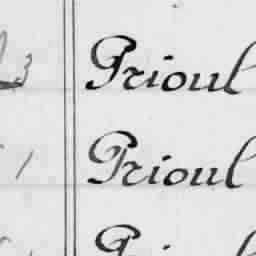 3 Prioul
1 Prioul